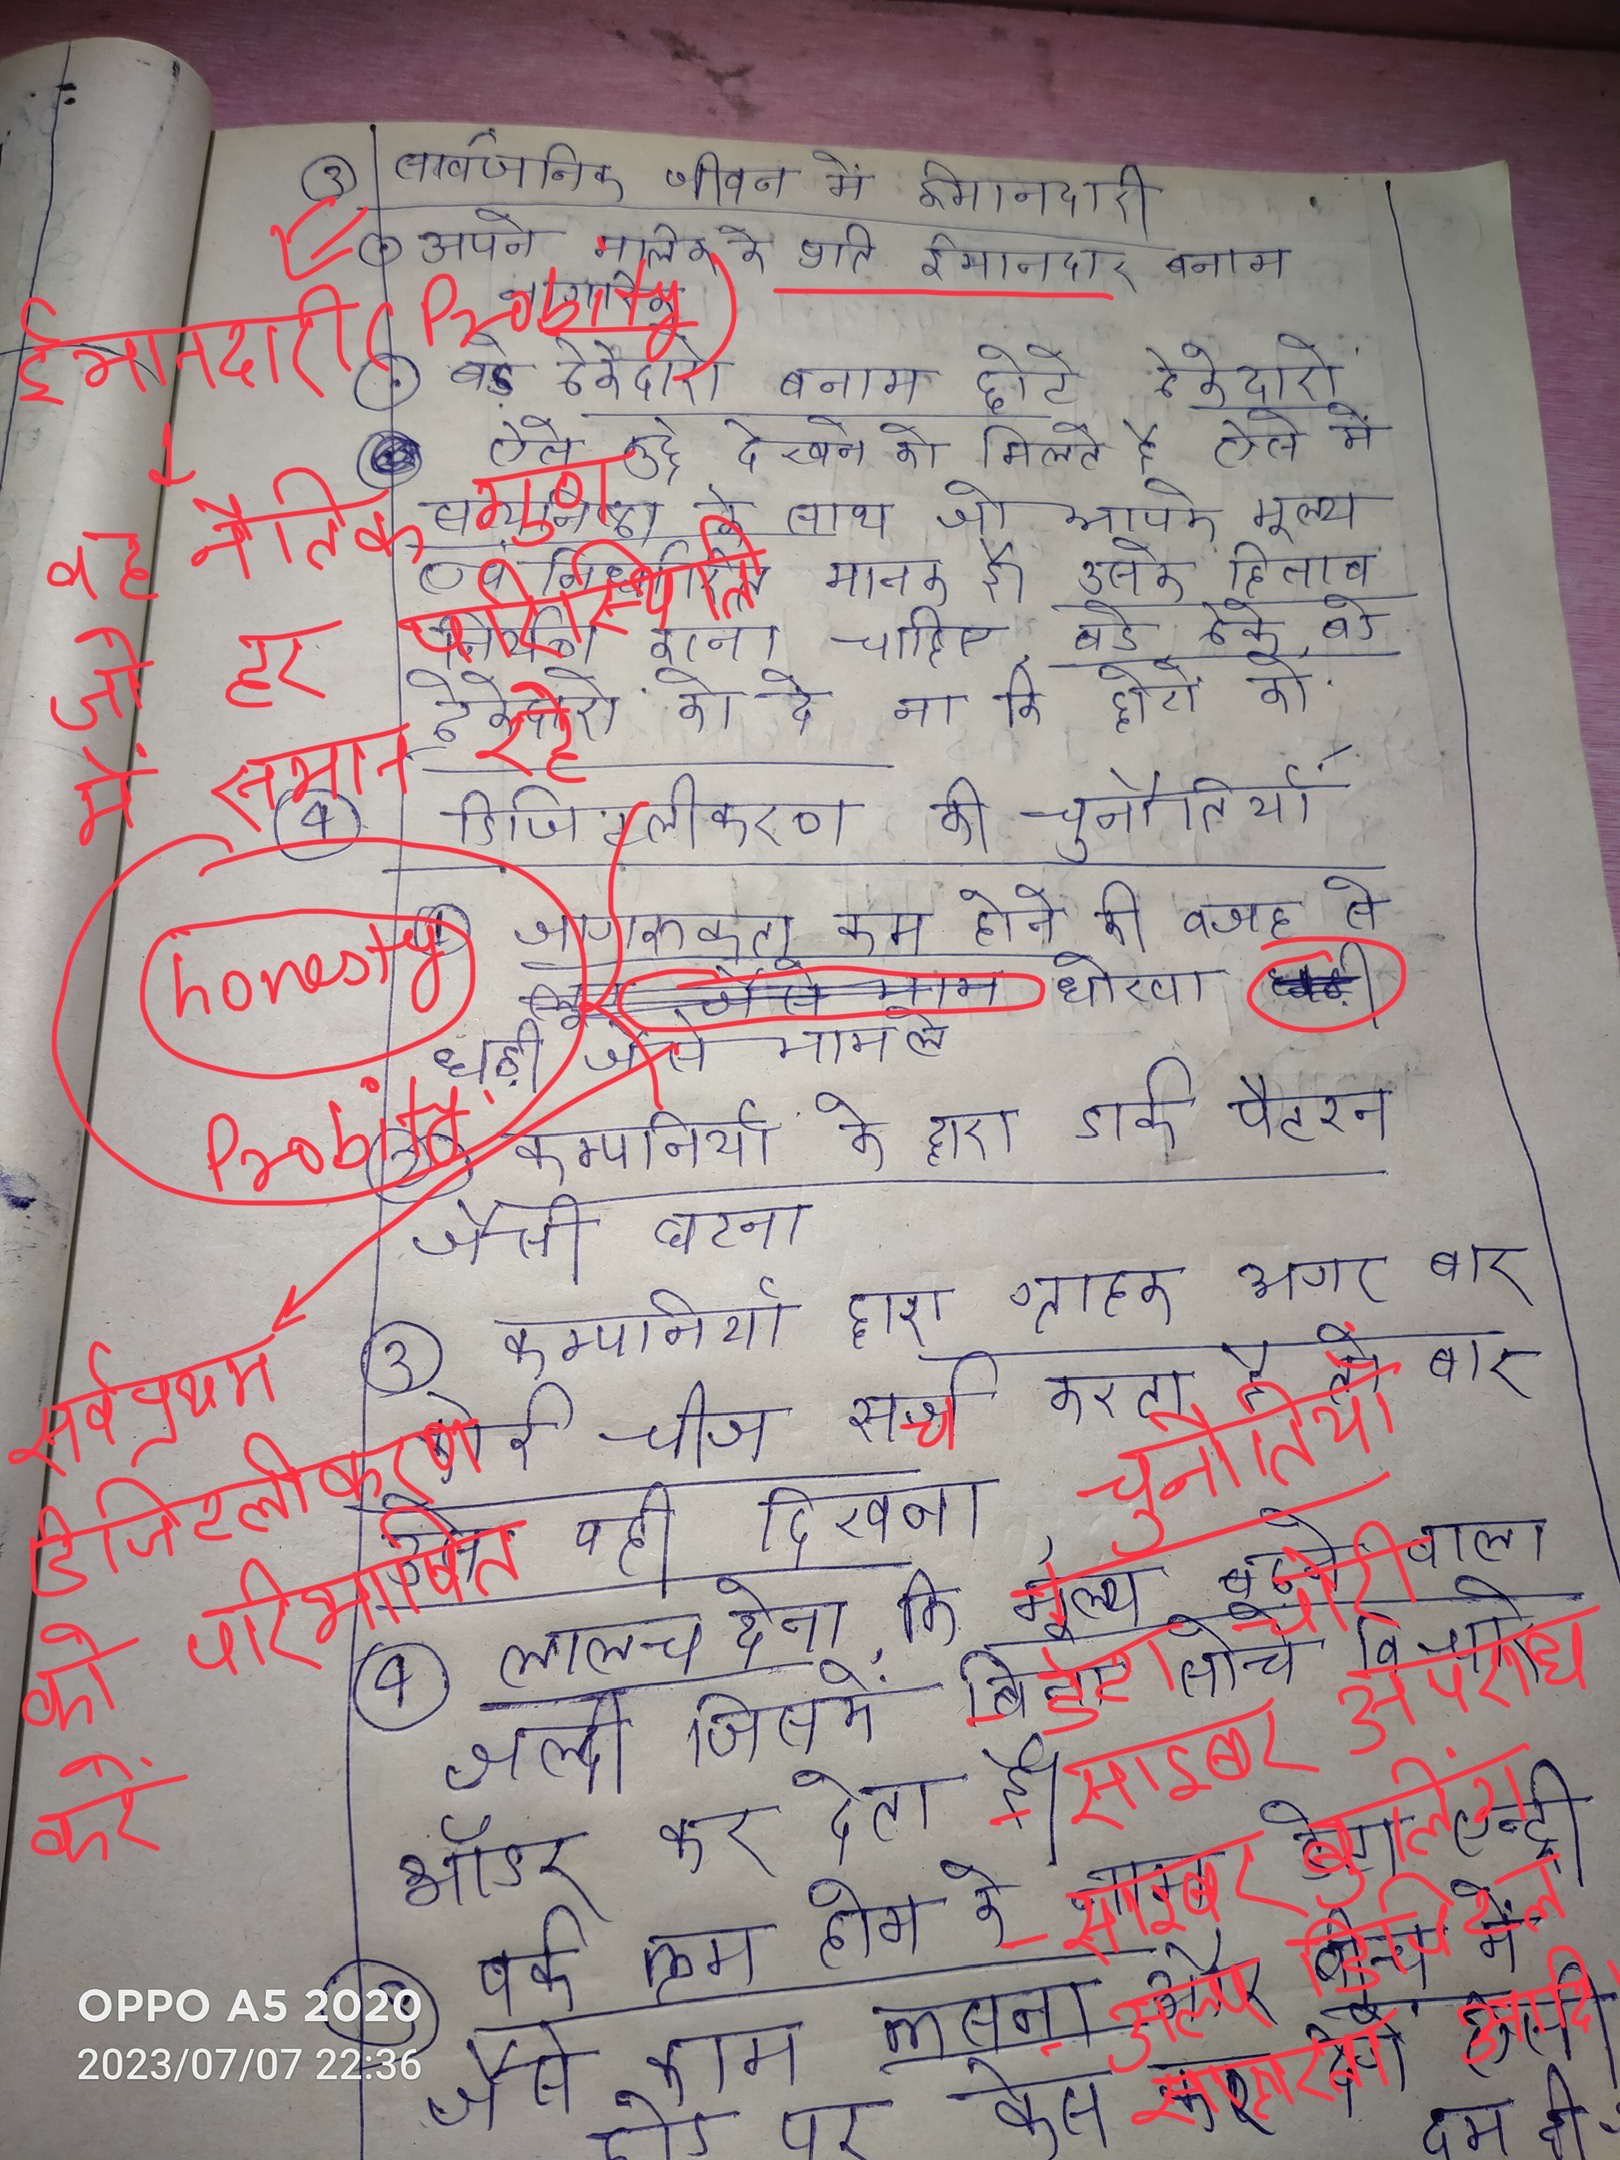 ③ सार्वजनिक जीवन में ईमानदारी
① अपने मालिक के प्रति ईमानदार बनाम
ईमानदारी (Probity)
बड़े ठेकेदारो बनाम छोटे ठेकेदारो
ऐसे मुद्दे देखने को मिलते है ऐसे में
वह नैतिक गुण
के साथ जो आपके मूल्य
एवं निर्धारित मानक है उसके हिसाब
जो हर परिस्थिती
करना चाहिए बडे ठेके बडे
ठेकेदारो को दे ना कि छोटों को
में समान रहे
④ डिजिटलीकरण की चुनौतियाँ
① जागरूकता कम होने की वजह से
honesty
जैसे धोखा
धड़ी जैसे मामले
Probity
② कम्पनियों के द्वारा डार्क पैटरन
जैसी घटना
③ कम्पनियों द्वारा ग्राहक अगर बार
सर्वप्रथम
कोई चीज सर्च करता है तो बार
डिजिटलीकरण
चुनौतियाँ
वही दिखना
को परिभाषित
करें
④ लालच देना कि मूल्य बढने वाला
डेटा चोरी
जल्दी जिसमें बिना सोचे विचारे
साइबर अपराध
ऑडर कर देता है।
साइबर बुलिंग
वर्क फ्रम होम के एन्ट्री
अल्प डिजिटल
जैसे काम और बीच में
साक्षरता आदि
पर केस कर
OPPO A5 2020
2023/07/07 22:36